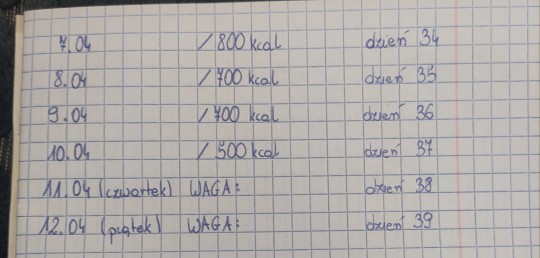 7.04 /800 kcal dzień 34
8.04 /700 kcal dzień 35
9.04 /700 kcal dzień 36
10.04 /500 kcal dzień 37
11.04 (czwartek) WAGA: dzień 38
12.04 (piątek) WAGA: dzień 39